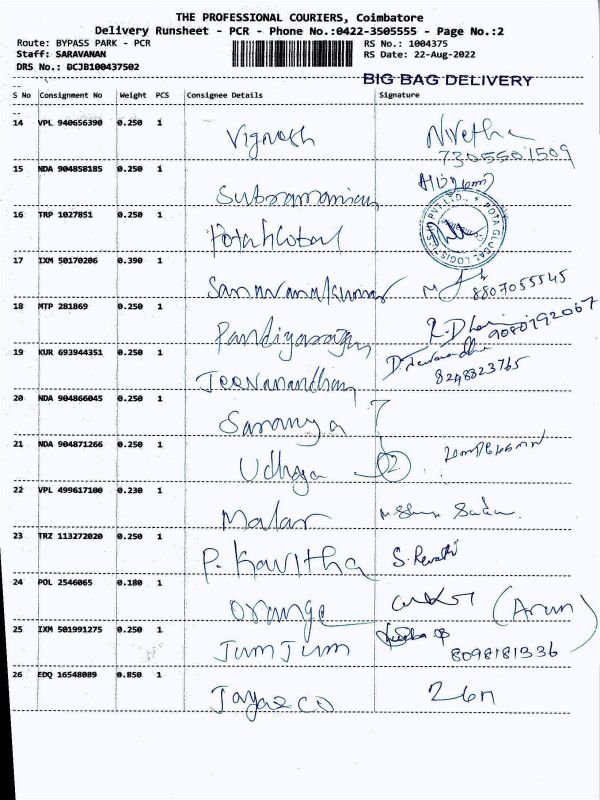 THE PROFESSIONAL COURIERS, Coimbatore
Delivery Runsheet - PCR - Phone No.:0422-3505555 - Page No.:2
Route: BYPASS PARK - PCR RS No.: 1004375
Staff: SARAVANAN RS Date: 22-Aug-2022
DRS No.: BCJB100437502
BIG BAG DELIVERY
S No Consignment No Weight PCS Consignee Details Signature
14 VPL 940656390 0.250 1 Vignesh Nivetha
7305501509
15 NDA 904858185 0.250 1 Subramanian
16 TRP 1027851 0.250 1 Pota Global
17 IXM 50170206 0.390 1 Saravanakumar 8807055545
18 MTP 281869 0.250 1 Pandiyarajan 9080792067
19 KUR 693944351 0.250 1 Jeevanandhan D. Jeevanandhan
8248823765
20 NDA 904866045 0.250 1 Saranya
21 NDA 904871266 0.250 1 Udhaya 2
22 VPL 499617100 0.230 1 Malar
23 TRZ 113272020 0.250 1 P. Kavitha S. Revathi
24 POL 2546065 0.180 1 Orange (Arun)
25 IXM 501991275 0.250 1 Jum Jum 8098181336
26 EDQ 16548089 0.850 1 Jaya & Co